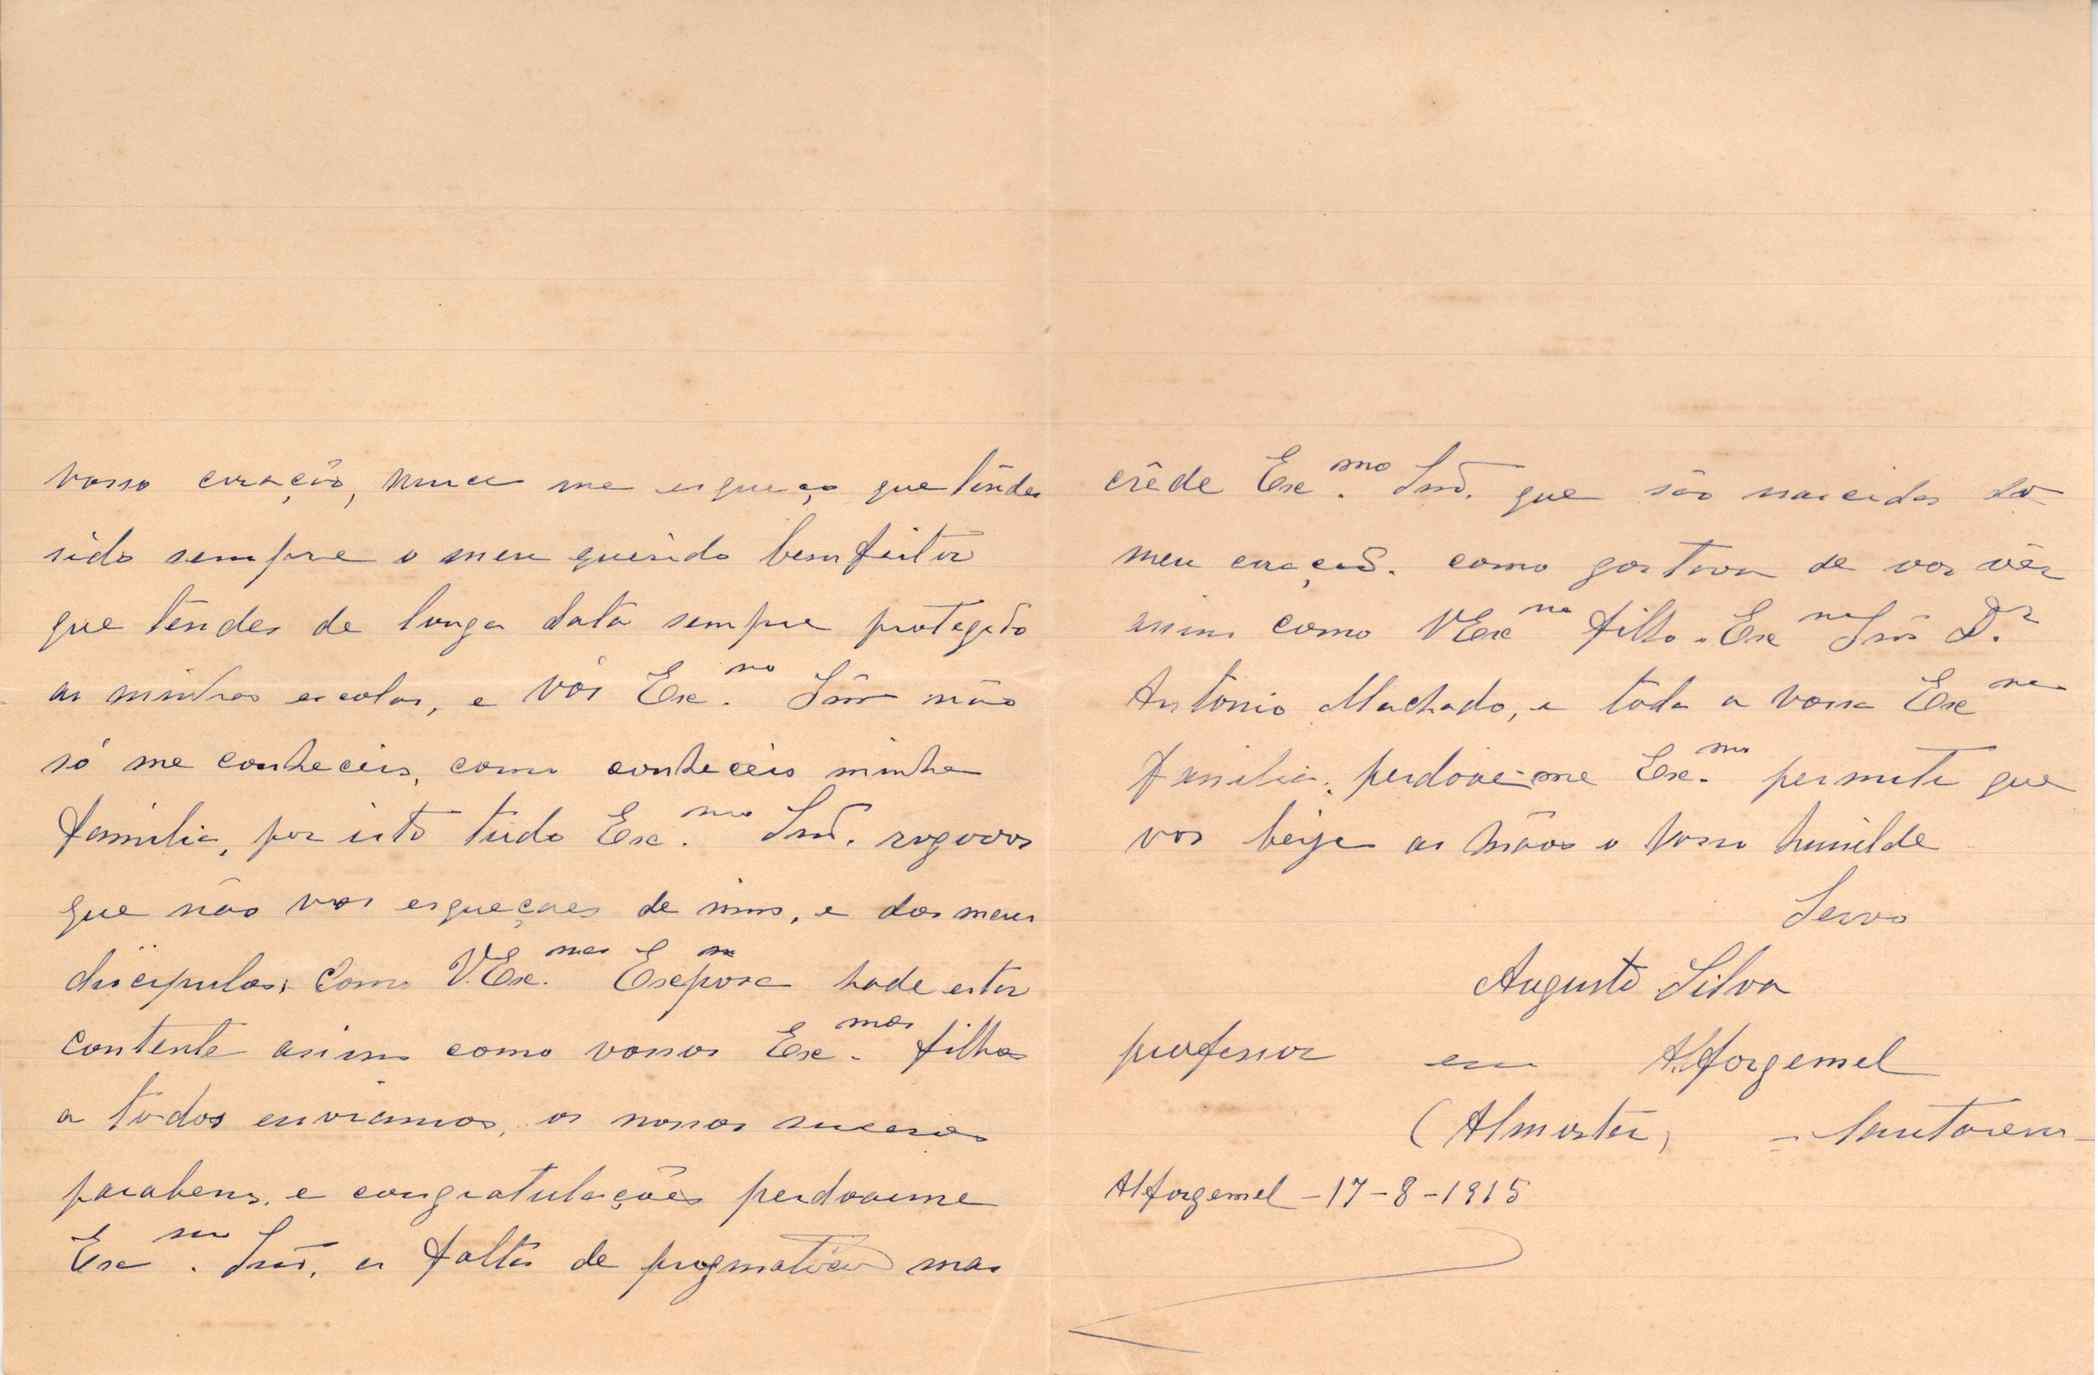 vosso coração, nunca me esqueço que tendes
sido sempre o meu querido bemfeitor
que tendes de longa data sempre protegido
as minhas escolas, e Vós Exc.mo Snr não
só me conheceis, como conheceis minha
familia, por isto tudo Exc.mo Snr. rogovos
que não vos esqueçaes de mim, e dos meus
discipulos; Como V.Exc.mas Exc.ma Espôsa hade estar
contente assim como vossos Exc.mos filhos
a todos enviamos, os nossos sinceros
parabens, e congratulações perdoaime
Exc.mo Snr. a falta de pragmatica mas
crêde Exc.mo Snr. que são nascidas do
meu coração. como gostava de vos vêr
assim como V Exc.mo filho Exc.mo Snr D.r
Antonio Machado, e toda a vossa Exc.ma
familia; perdoae-me Exc.mo permiti que
vos beije as mãos o vosso humilde
Servo
Augusto Silva
professor em Alforgemel
(Almoster) - Santarem -
Alforgemel - 17 - 8 - 1915